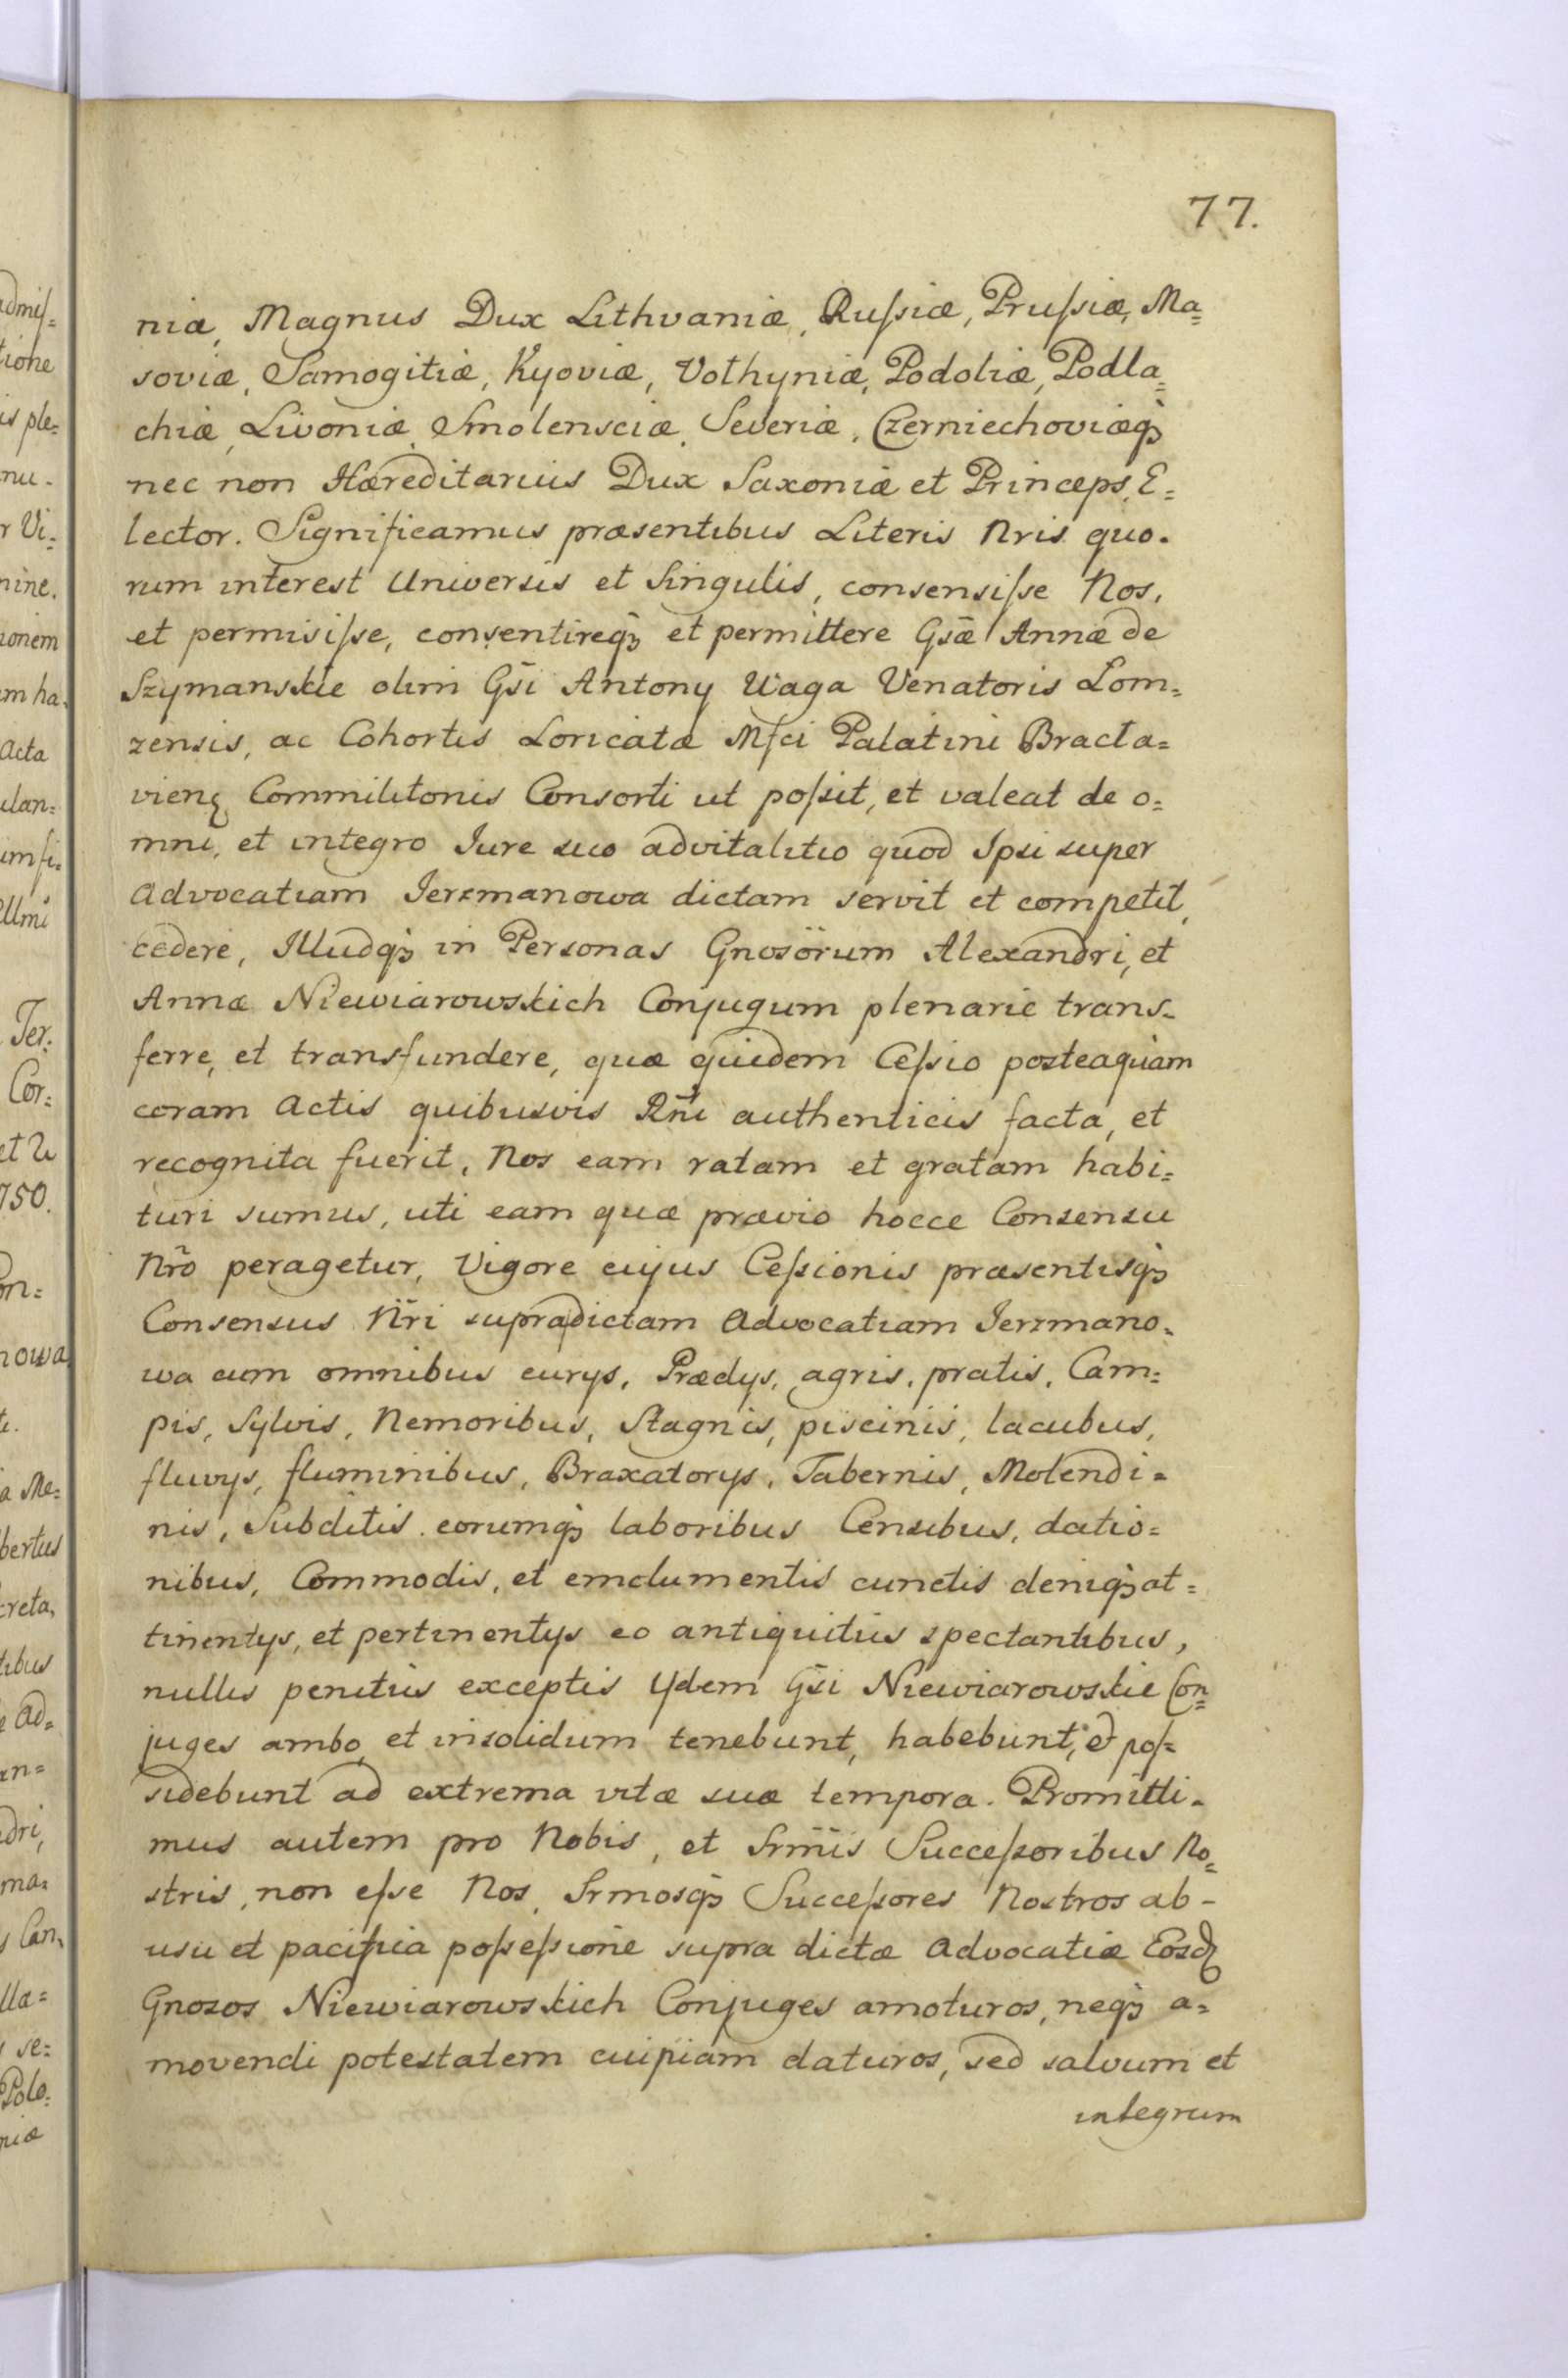 77.
niæ, Magnus Dux Lithvaniæ, Ruſsiæ, Pruſsiæ, Ma=
soviæ, Samogitiæ, Kyoviæ, Volhyniæ, Podoliæ, Podla=
chiæ, Livoniæ, Smolensciæ, Severiæ, Czerniechoviæq3
nec non Hæreditarius Dux Saxoniæ et Princeps E=
lector. Significamus præsentibus Literis Nris quo=
rum interest Universis et Singulis, consensiſse Nos,
et permisiſse, consentireq3 et permittere Gsæ Annæ de
Szymanskie olim Gsi Antony Waga Venatoris Lom=
zensis, ac Cohortis Loricatæ Mfci Palatini Bracta=
vienẜ Commilitonis Consorti ut poſsit, et valeat de o=
mni, et integro Jure suo advitalitio quod Ipsi super
Advocatiam Jerzmanowa dictam servit et competit,
cedere, Illudq3 in Personas Gnosorum Alexandri, et
Annæ Niewiarowskich Conjugum plenarie trans=
ferre, et transfundere, quæ quidem Ceſsio posteaquam
coram Actis quibusvis Rñi authenticis facta, et
recognita fuerit, Nos eam ratam et gratam habi=
turi sumus, uti eam quæ prævio hocce Consensu
Nr̃o peragetur, Vigore cujus Ceſsionis præsentisq3
Consensus Nr̃i supradictam Advocatiam Jerzmano=
wa cum omnibus curys, Prædys, agris, pratis, Cam=
pis, Sylvis, Nemoribus, Stagnis, piscinis, lacubus,
fluvys, fluminibus, Braxatorys, Tabernis, Molendi=
nis, Subditis eorumq3 laboribus Censibus, datio=
nibus, Commodis, et emolumentis cunctis deniq3 at=
tinentys, et pertinentys eo antiquitus spectantibus,
nullis penitus exceptis Ydem Gsi Niewiarowskie Con=
juges ambo, et insolidum tenebunt, habebunt, et poſ=
sidebunt ad extrema vitæ suæ tempora. Promitti=
mus autem pro Nobis, et Srm̃is Succeſsoribus No=
stris, non eſse Nos, Srmosq3 Succeſsores Nostros ab=
usu et pacifica poſseſsione supra dictæ Advocatiæ Eosd
Gnosos Niewiarowskich Conjuges amoturos, neq3 a=
movendi potestatem cuipiam daturos, sed salvum et
integrum